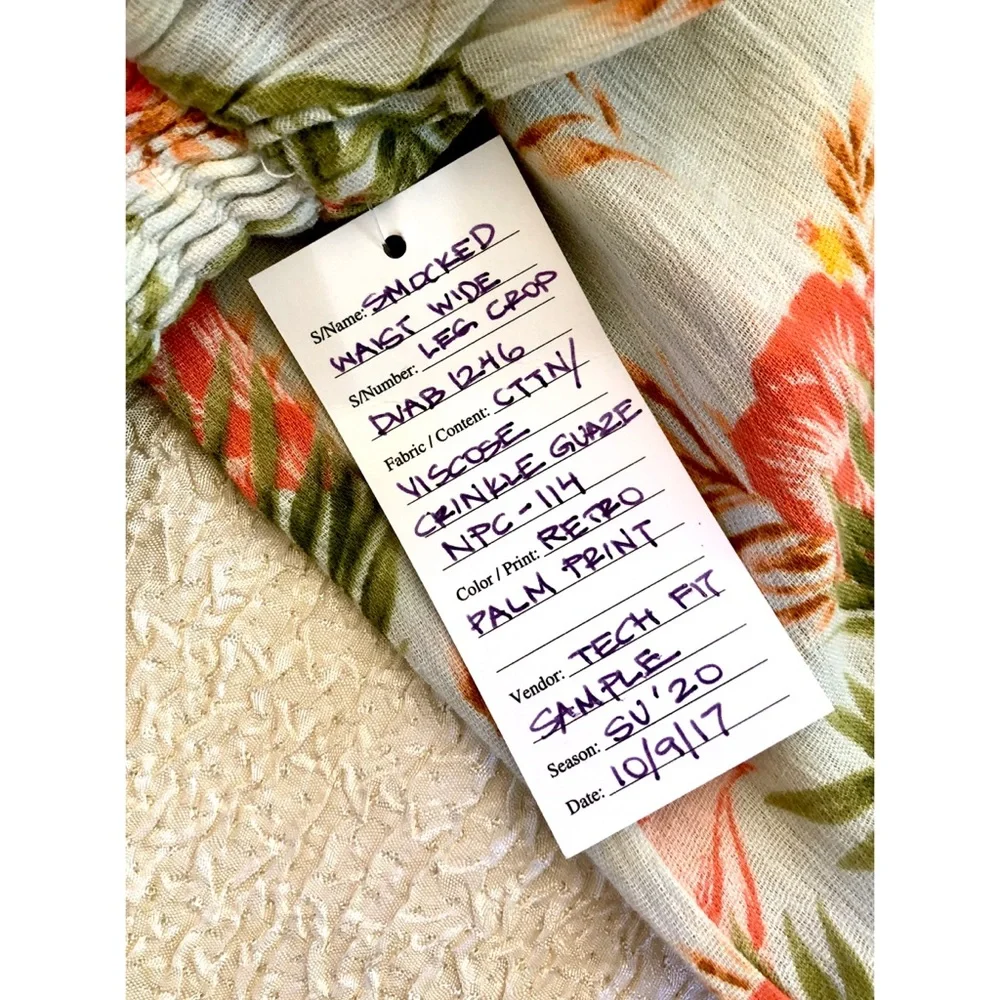 S/Name: SMOCKED
WAIST WIDE
S/Number: LEG CROP
DJAB 1246
Fabric / Content: CTTN/
VISCOSE
CRINKLE GUAZE
NPC-114
Color / Print: RETRO
PALM PRINT
Vendor: TECH FIT
SAMPLE
Season: SU '20
Date: 10/9/17